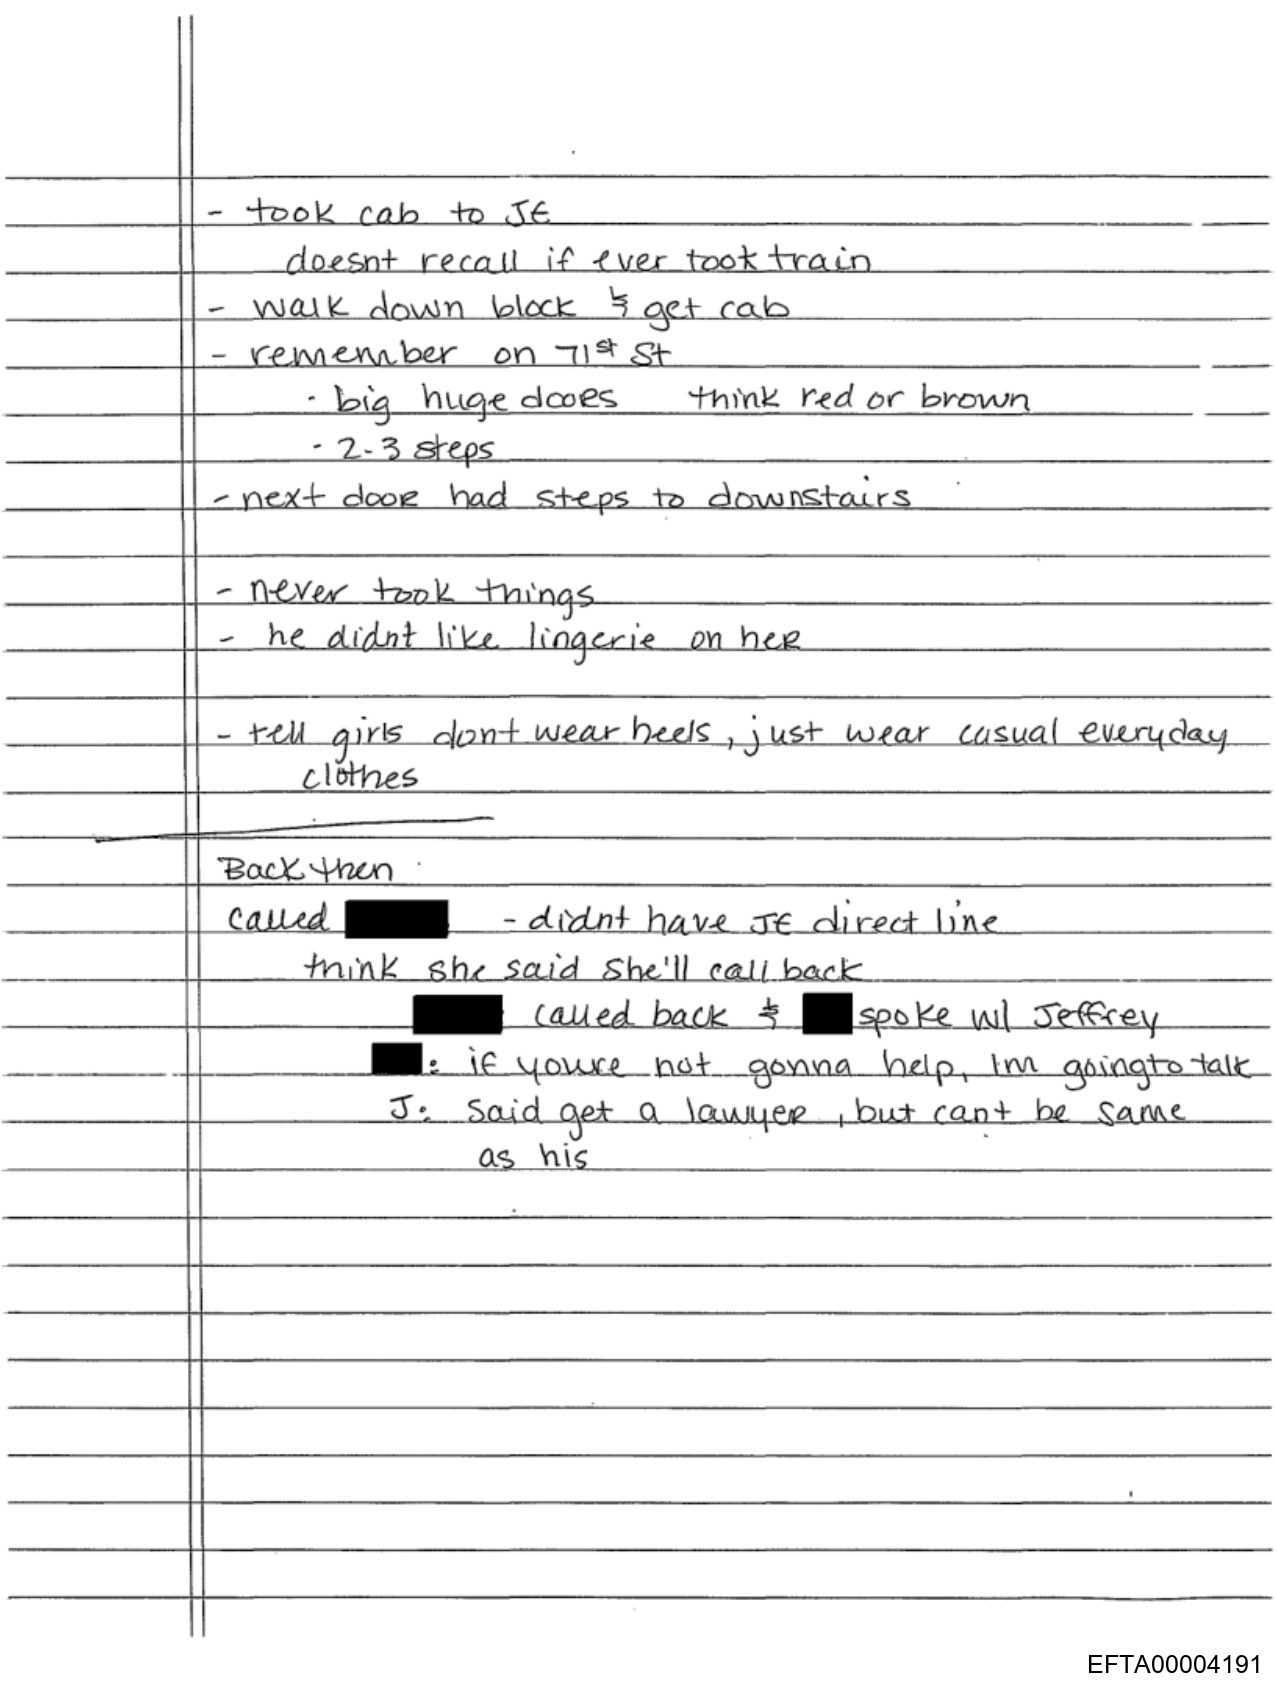 - took cab to JE
doesnt recall if ever took train
- walk down block & get cab
- remember on 71st St
· big huge doors   think red or brown
· 2-3 steps
- next door had steps to downstairs
- never took things
- he didnt like lingerie on her
- tell girls dont wear heels, just wear casual everyday
clothes
Back then
called - didnt have JE direct line
think she said she'll call back
called back & spoke w/ Jeffrey
: if youre not gonna help, Im going to talk
J: said get a lawyer, but cant be same
as his
EFTA00004191